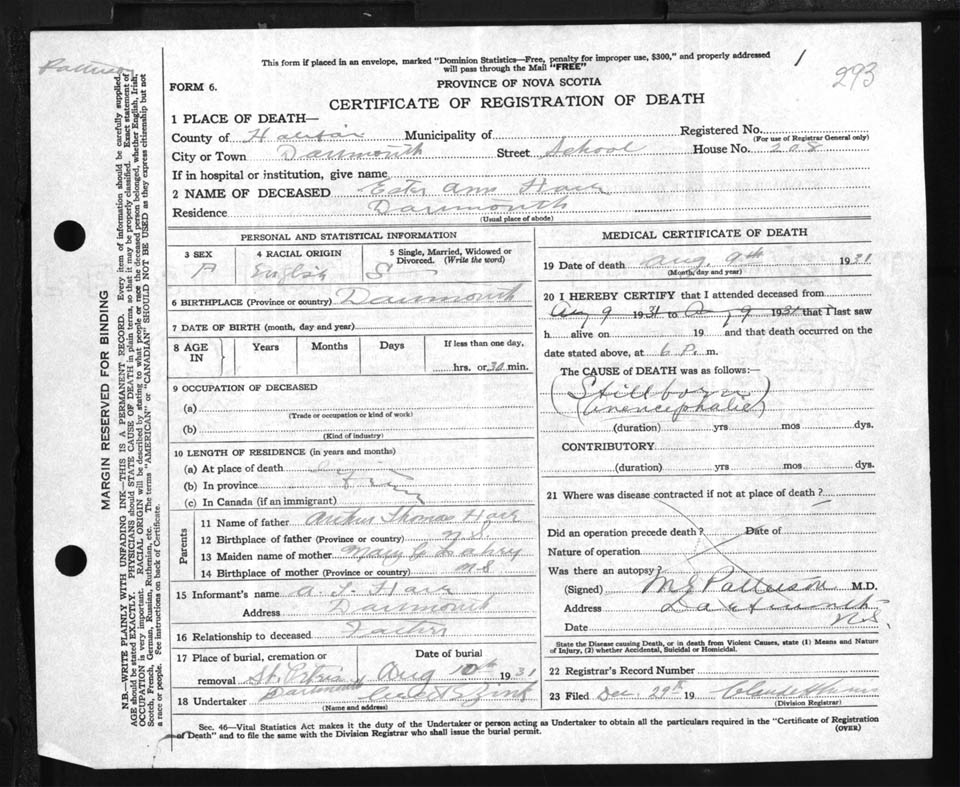 This form if placed in an envelope, marked "Dominion Statistics—Free, penalty for improper use, $300," and properly addressed
will pass through the Mail "FREE"
1
293
Patterson
FORM 6.
PROVINCE OF NOVA SCOTIA
CERTIFICATE OF REGISTRATION OF DEATH
MARGIN RESERVED FOR BINDING
N.B.—WRITE PLAINLY WITH UNFADING INK—THIS IS A PERMANENT RECORD. Every item of information should be carefully supplied.
AGE should be stated EXACTLY. PHYSICIANS should STATE CAUSE OF DEATH in plain terms, so that it may be properly classified. Exact statement of
OCCUPATION is very important. RACIAL ORIGIN will be described by stating to what people or race the deceased person belonged, whether English, Irish,
Scotch, French, German, Russian, Ruthenian, etc. The terms "AMERICAN" or "CANADIAN" SHOULD NOT BE USED as they express citizenship but not
a race or people. See instructions on back of Certificate.
1 PLACE OF DEATH—
County of Halifax Municipality of Registered No.
(For use of Registrar General only)
City or Town Darmouth Street School House No. 208
If in hospital or institution, give name
2 NAME OF DECEASED Ester Ann
Residence Darmouth
(Usual place of abode)
PERSONAL AND STATISTICAL INFORMATION
3 SEX
4 RACIAL ORIGIN English
5 Single, Married, Widowed or Divorced. (Write the word) S
6 BIRTHPLACE (Province or country) Darmouth
7 DATE OF BIRTH (month, day and year)
8 AGE IN Years Months Days If less than one day,
hrs. or 30 min.
9 OCCUPATION OF DECEASED
(a)
(Trade or occupation or kind of work)
(b)
(Kind of industry)
10 LENGTH OF RESIDENCE (in years and months)
(a) At place of death
(b) In province
(c) In Canada (if an immigrant)
Parents
11 Name of father Arthur Thomas
12 Birthplace of father (Province or country) N.S.
13 Maiden name of mother Mary
14 Birthplace of mother (Province or country) N.S
15 Informant's name A. T.
Address Darmouth
16 Relationship to deceased Father
17 Place of burial, cremation or removal St. Peters Dartmouth
Date of burial Aug 10th 1931
18 Undertaker Zink
(Name and address)
MEDICAL CERTIFICATE OF DEATH
19 Date of death Aug. 9th 1931
(Month, day and year)
20 I HEREBY CERTIFY that I attended deceased from
Aug 9 1931 to Aug 9 1931 that I last saw
h alive on 19 and that death occurred on the
date stated above, at 6 P. m.
The CAUSE of DEATH was as follows:—
(Stillborn)
(anencephalic)
(duration) yrs mos dys.
CONTRIBUTORY
(duration) yrs mos dys.
21 Where was disease contracted if not at place of death?
Did an operation precede death? Date of
Nature of operation
Was there an autopsy?
(Signed) M G Patterson M.D.
Address Dartmouth
N.S.
Date
State the Disease causing Death, or in death from Violent Causes, state (1) Means and Nature
of Injury, (2) whether Accidental, Suicidal or Homicidal.
22 Registrar's Record Number
23 Filed Dec. 29th 19
(Division Registrar)
Sec. 46—Vital Statistics Act makes it the duty of the Undertaker or person acting as Undertaker to obtain all the particulars required in the "Certificate of Registration
of Death" and to file the same with the Division Registrar who shall issue the burial permit.
(OVER)